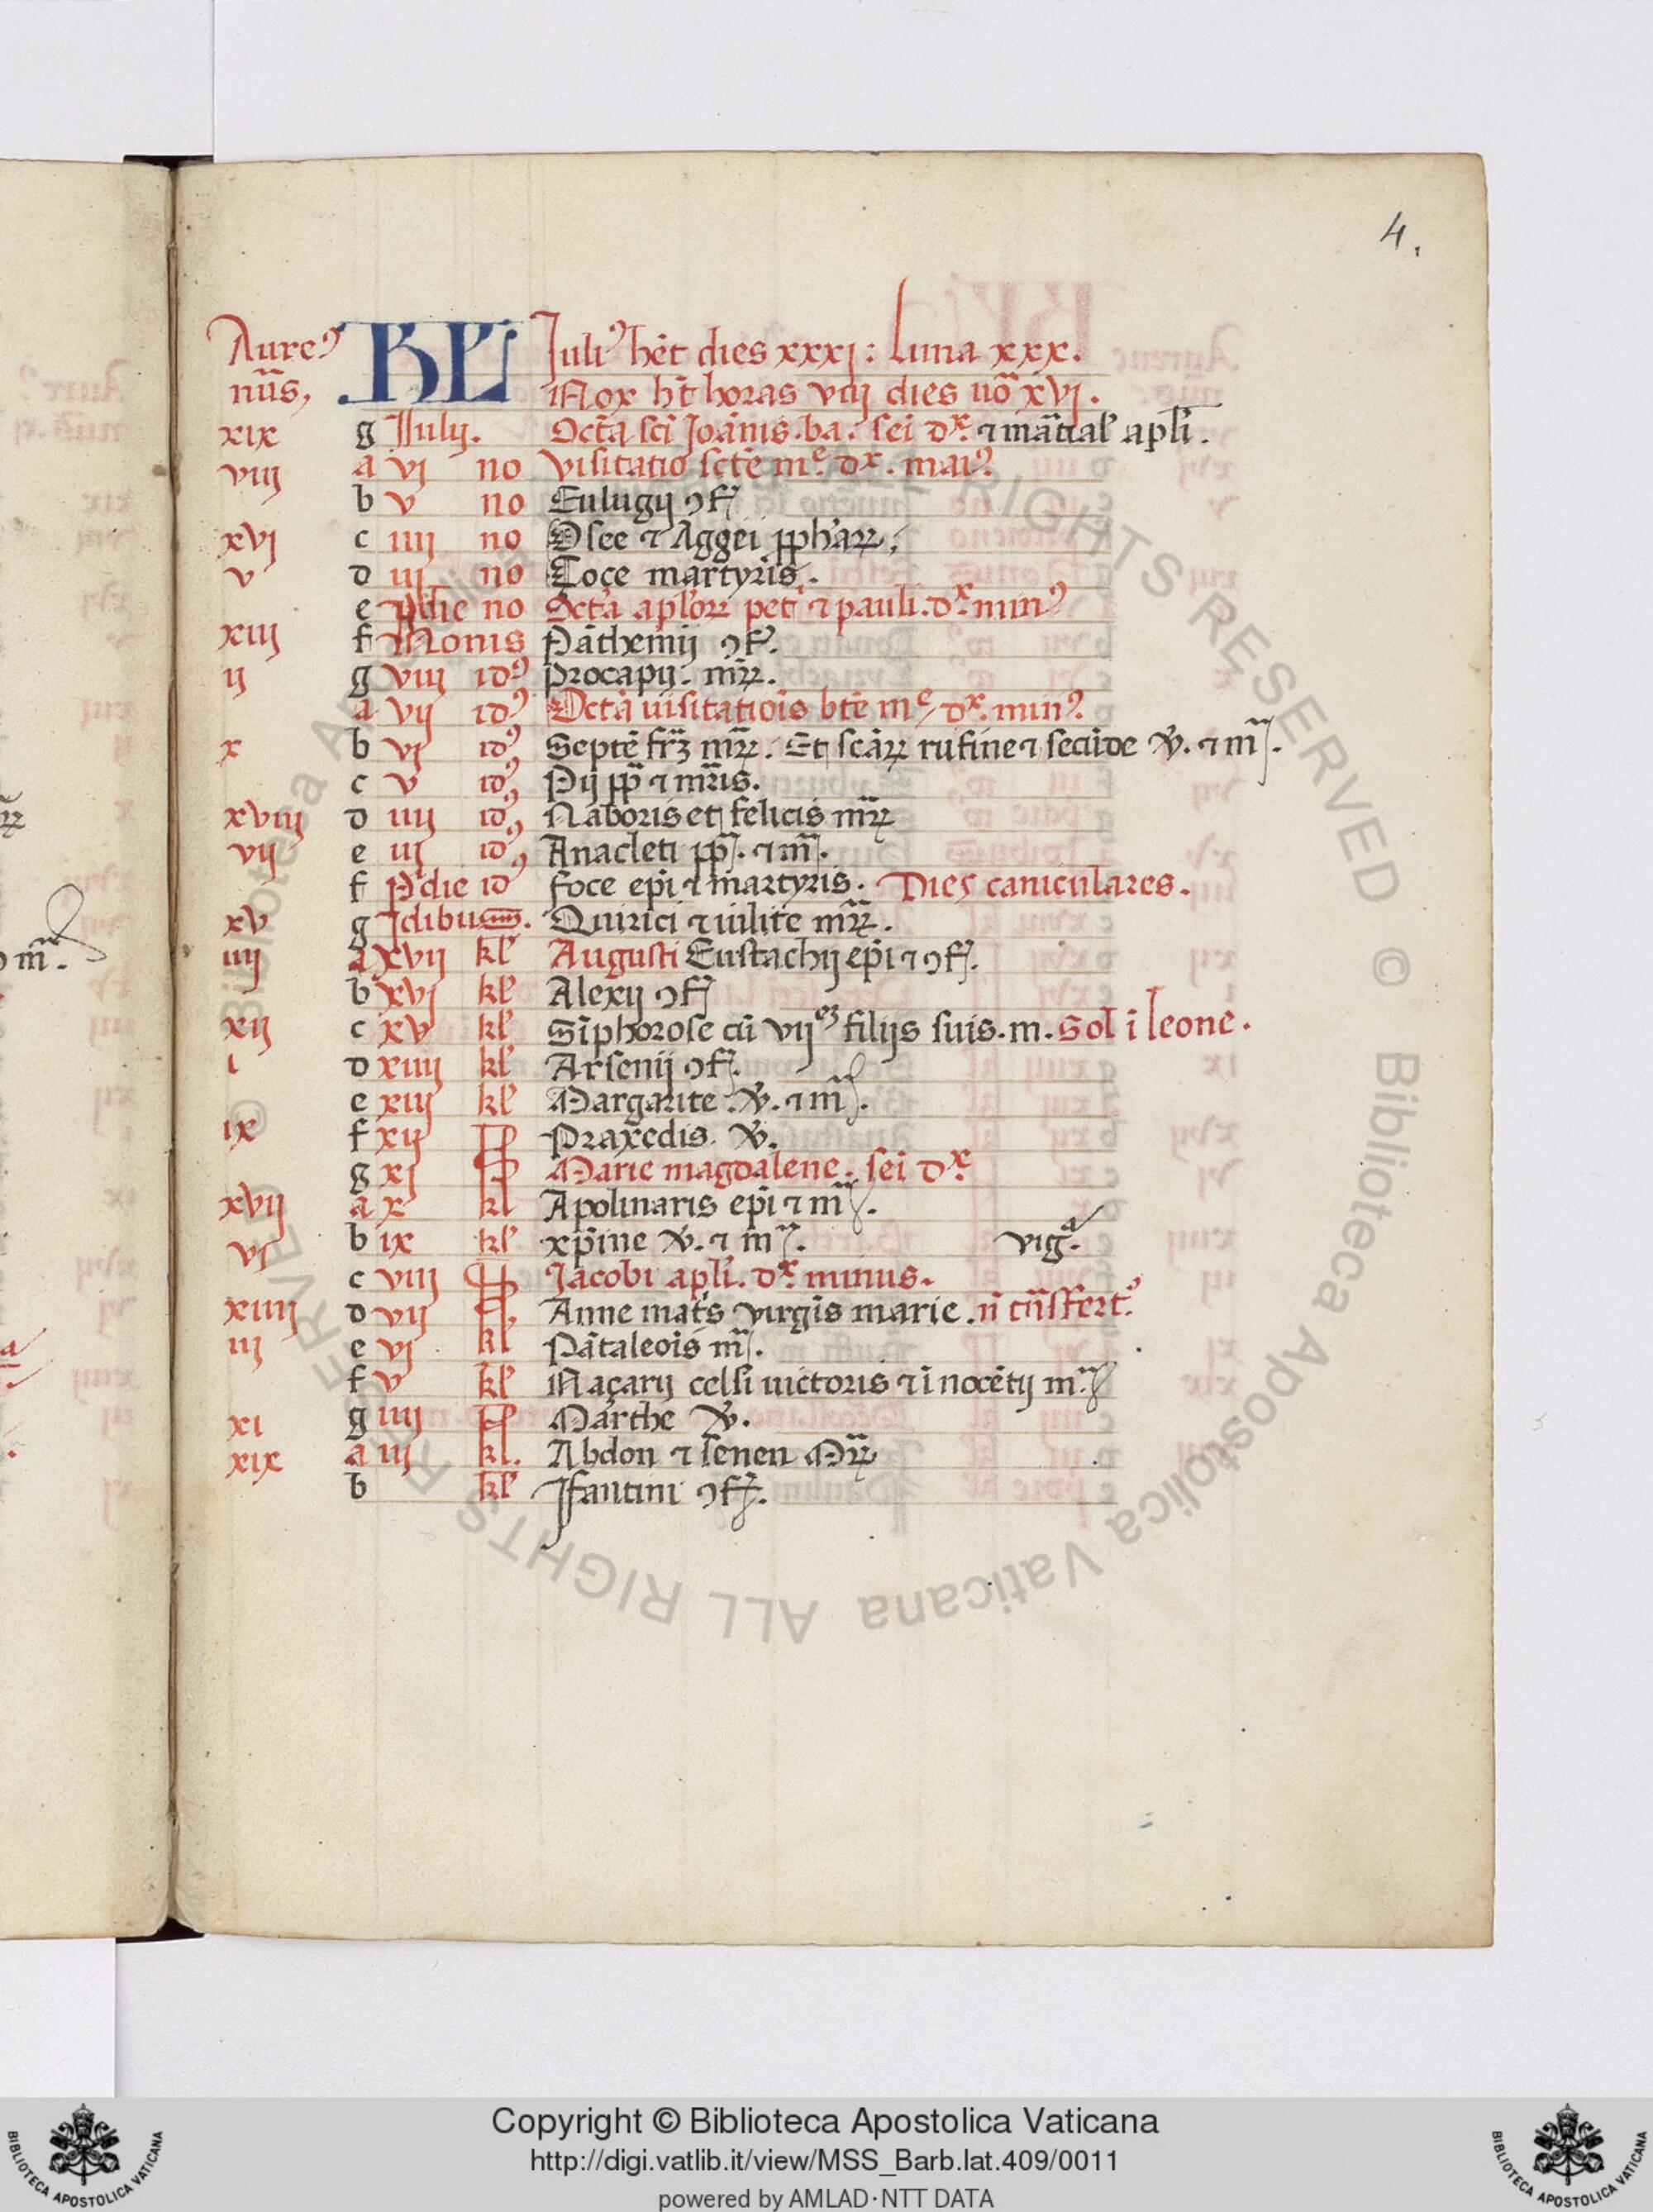 4.
Aure⁹ KL Juli⁹ hēt dies xxxj: Luna xxx.
nūs, Nox ht̄ horas viij dies uō xvj.
xix g Julij. Octā sci Joānis. ba. sei dx. ⁊ mātial' apl'i.
viij a vj no visitatio scte mͤ. dx. mai⁹
b v no Eulugij ꝯf
xvj c iiij no Osee ⁊ Aggei ꝓphaꝝ.
v d iij no Toçe martyris.
e Pdie no Octa apl'oꝝ petⁱ ⁊ pauli. dx. min⁹
xiij f Nonis Pāthemij ꝯf.
ij g viij id⁹ Procapij. mr̄ꝝ.
a vij id⁹ Octā uisitatiōis btē mͤ, dx. min⁹.
x b vj id⁹ Septē fr̄ꝫ mr̄ꝝ. Et scāꝝ rufine ⁊ secūde v̄. ⁊ m̄.
c v id⁹ Pij pp̄ ⁊ mr̄is.
xviij d iiij id⁹ Naboris et felicis mr̄ꝝ
vij e iij id⁹ Anacleti pp̄. ⁊ m̄.
f P'die id foce epī ⁊ martyris. Dies caniculares.
xv g Jdibus. Quirici ⁊ iulite mr̄ꝝ.
iiij a xvij kl' Augusti Eustachij epī ⁊ ꝯf.
b xvj kl' Alexij ꝯf
xij c xv kl' Sīphorose cū vij filijs suis. m. Sol ī leone.
i d xiiij kl' Arsenij ꝯf.
e xiij kl' Margarite. v̄. ⁊ m̄.
ix f xij kl Praxedis. v̄.
g xj kl Marie magdalene. sei dx
xvij a x kl Apolinaris epī ⁊ m̄.
vj b ix kl' xp̄ine v̄. ⁊ m̄. vigᵃ.
c viij kl Jacobi apl'i. dx minus.
xiiij d vij kl Anne mat's virgīs marie. n̄ trāsfert.
iij e vj kl Pātaleōis m̄.
f v kl' Naçarij celsi uictoris ⁊ īnocētij m̄.
xi g iiij kl Marthe v̄.
xix a iij kl. Abdon ⁊ senen Mr̄ꝝ
b kl' Jfantini ꝯf.
© Biblioteca Apostolica Vaticana ALL RIGHTS RESERVED
Copyright © Biblioteca Apostolica Vaticana
http://digi.vatlib.it/view/MSS_Barb.lat.409/0011
powered by AMLAD·NTT DATA
BIBLIOTECA APOSTOLICA VATICANA
BIBLIOTECA APOSTOLICA VATICANA